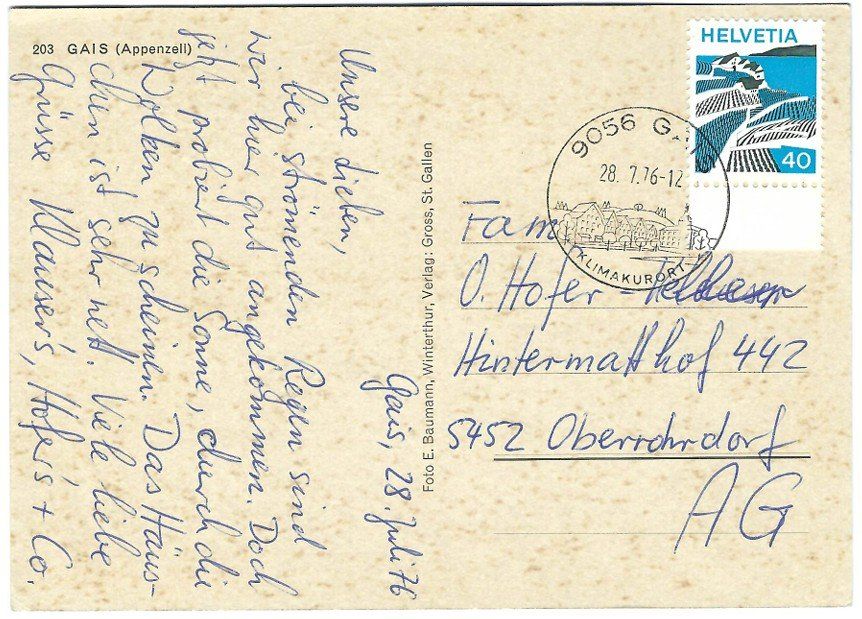 203 GAIS (Appenzell)
Gais, 28. Juli 76
Unsere Lieben,
bei strömenden Regen sind
wir hier gut angekommen. Doch
jetzt probiert die Sonne, durch die
Wolken zu scheinen. Das Häus-
chen ist sehr nett. Viele liebe
Grüsse Klauser's, Hofer's + Co.
Foto E. Baumann, Winterthur, Verlag: Gross, St. Gallen
HELVETIA
40
9056 GAIS
28. 7.76-12
KLIMAKURORT
Fam
O. Hofer -
Hintermatthof 442
5452 Oberrohrdorf
AG